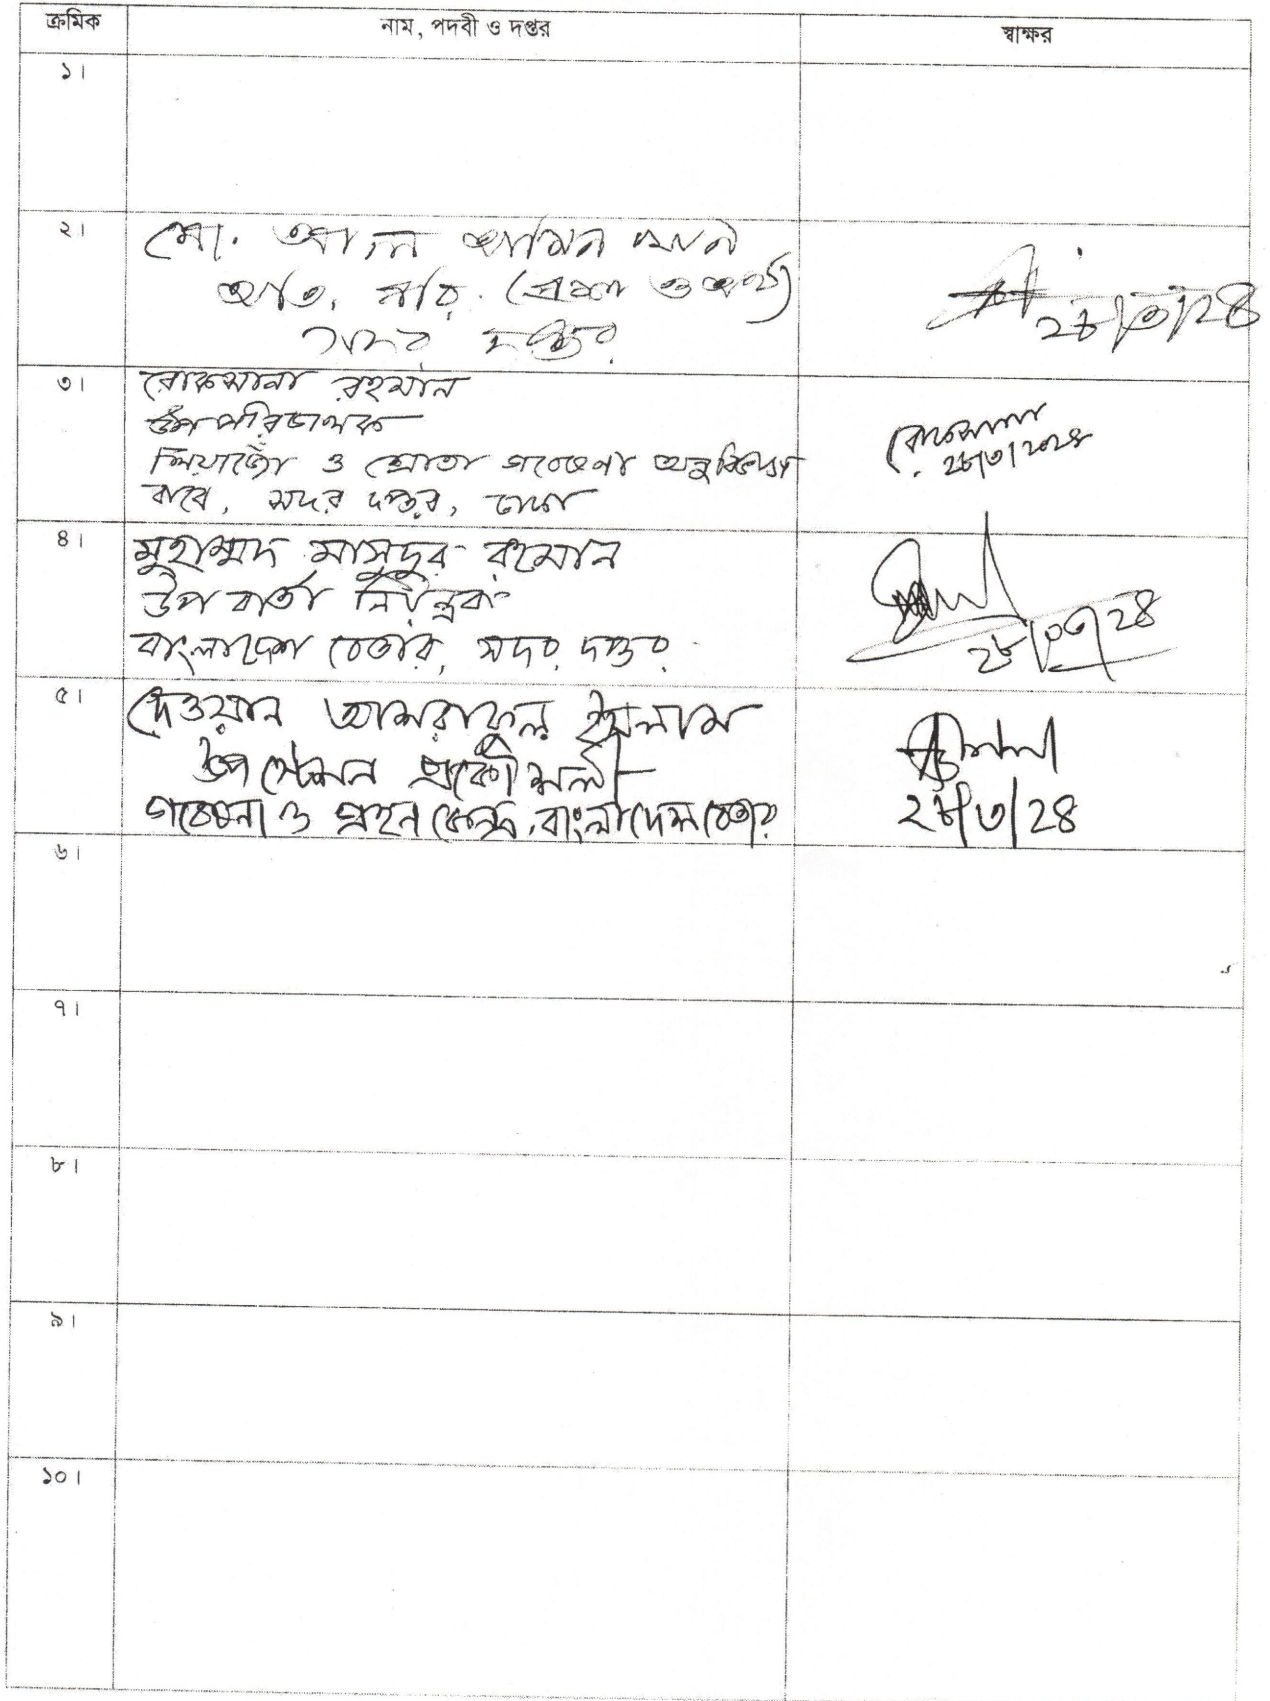 ক্রমিক নাম, পদবী ও দপ্তর স্বাক্ষর
১।
২। মো. আল আমিন খান
অতি. পরি. (প্রশা ও অর্থ)
সদর দপ্তর
২৮/৩/২৪
৩। রোকসানা রহমান
উপপরিচালক
লিয়াজোঁ ও শ্রোতা গবেষণা
বাবে, সদর দপ্তর, ঢাকা
রোকসানা
২৮/৩/২০২৪
৪। মুহাম্মদ মাসুদুর রহমান
উপ বার্তা নিয়ন্ত্রক
বাংলাদেশ বেতার, সদর দপ্তর
২৮/০৩/২৪
৫। দেওয়ান আশরাফুল ইসলাম
উপ স্টেশন প্রকৌশলী
গবেষনা ও গ্রহন কেন্দ্র, বাংলাদেশ বেতার
২৮/৩/২৪
৬।
৭।
৮।
৯।
১০।